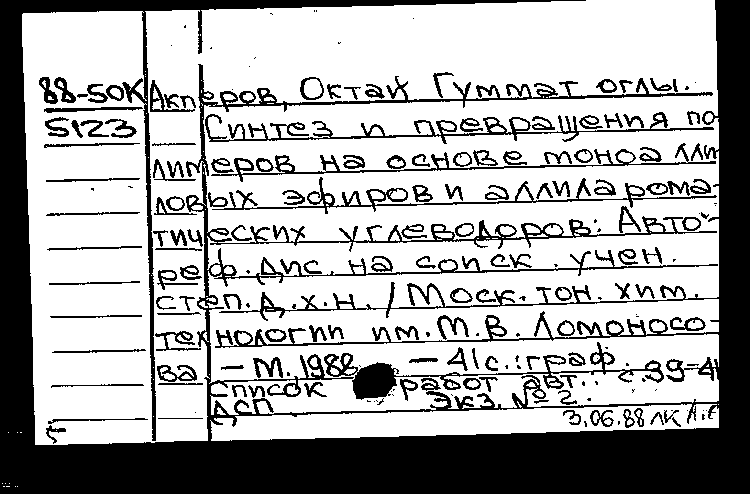 88-50К Акперов, Октай Гуммат оглы.
5123 Синтез и превращения по-
лимеров на основе моноалли-
ловых эфиров и аллиларома-
тических углеводоров: Авто-
реф. дис. на соиск. учен.
степ. д.х.н. / Моск. тон. хим.
технологии им. М.В. Ломоносо-
ва. — М., 1988 — 41с.: граф.
Список работ авт.: с.39-41
ДСП Экз. № 2.
3.06.88 ЛК